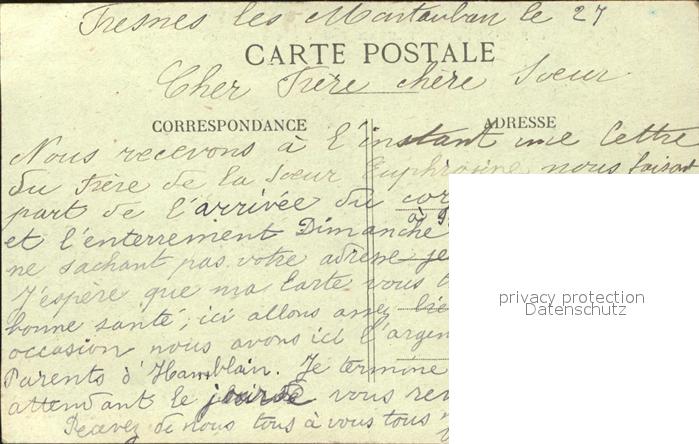 Fresnes les Montauban le 27
CARTE POSTALE
Cher Frère chère Soeur
CORRESPONDANCE
ADRESSE
Nous recevons à l'instant une lettre
du Frère de la Soeur Euphrasine nous faisant
part de l'arrivée du cor
à
et l'enterrement Dimanche
ne sachant pas votre adresse je
J'espère que ma Carte vous
bonne santé, ici allons assez bie
occasion nous avons ici l'argen
Parents d'Hamblain. Je termine
attendant le vous rev
Recevez de nous tous à vous tous
privacy protection
Datenschutz